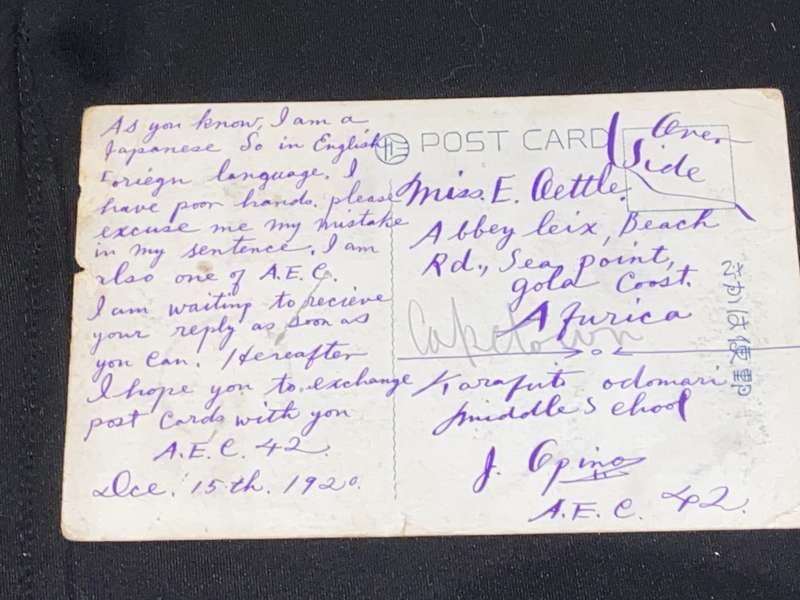 As you know, I am a
Japanese So in English
Foriegn language. I
have poor hands. please
excuse me my mistake
in my sentence. I am
also one of A.E.C.
I am waiting to recieve
your reply as soon as
you can. Hereafter
I hope you to exchange
post cards with you
A.E.C. 42.
Dce. 15th. 1920.
POST CARD
Over
Side
Miss. E. Oettle.
Abbey leix, Beach
Rd., Sea point,
gold Coost.
Afurica
Capetown
Karafuto odomari
middle School
J. Opino
A.E.C. 42.
きかは便郵